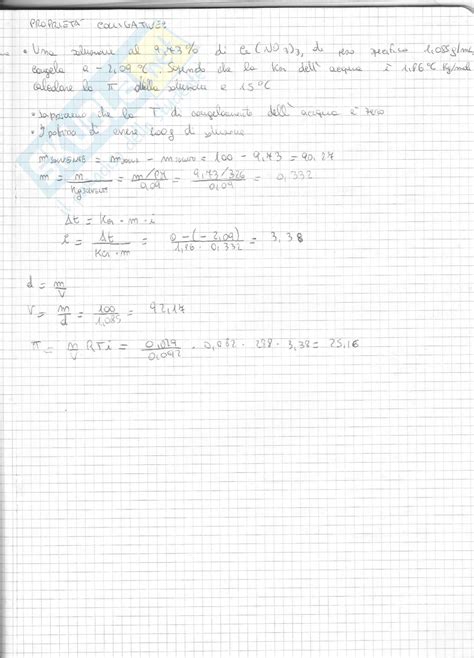 PROPRIETA' COLLIGATIVE:
• Una soluzione al 9,73% di Ce(NO3)3, di peso specifico 1,085 g/ml,
congela a -2,09 °C. Sapendo che la Kcr dell'acqua è 1,86 °C Kg/mol
calcolare la π della soluzione a 15 °C
• sappiamo che la T di congelamento dell'acqua è zero
• Ipotizzo di avere 100g di soluzione
mSOLVENTE = mSOLUZ - mSOLUTO = 100 - 9,73 = 90,27
m = n / Kg solvente = m/PM / 0,09 = 9,73/326 / 0,09 = 0,332
Δt = Kcr · m · i
i = Δt / Kcr · m = 0-(-2,09) / 1,86 · 0,332 = 3,38
d = m/V
V = m/d = 100/1,085 = 92,17
π = n/V RTi = 0,029/0,092 · 0,082 · 288 · 3,38 = 25,16